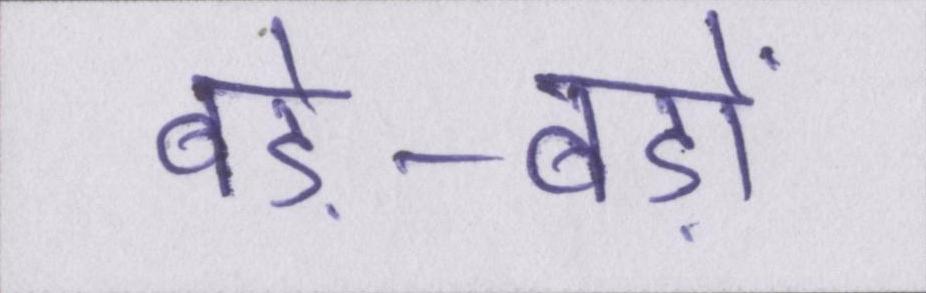 बड़े-बड़ों